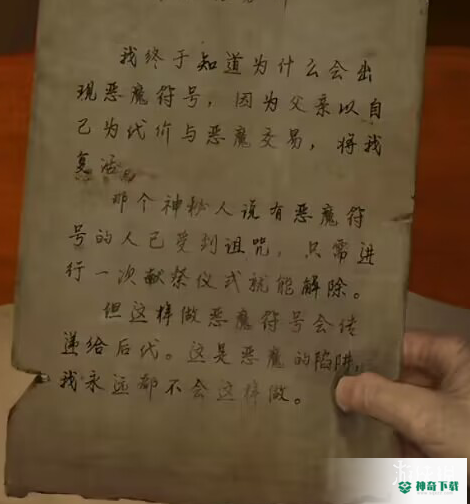 我终于知道为什么会出
现恶魔符号，因为父亲以自
己为代价与恶魔交易，将我
复活。
那个神秘人说有恶魔符
号的人已受到诅咒，只需进
行一次献祭仪式就能解除。
但这样做恶魔符号会传
递给后代。这是恶魔的陷阱，
我永远都不会这样做。
神奇下载